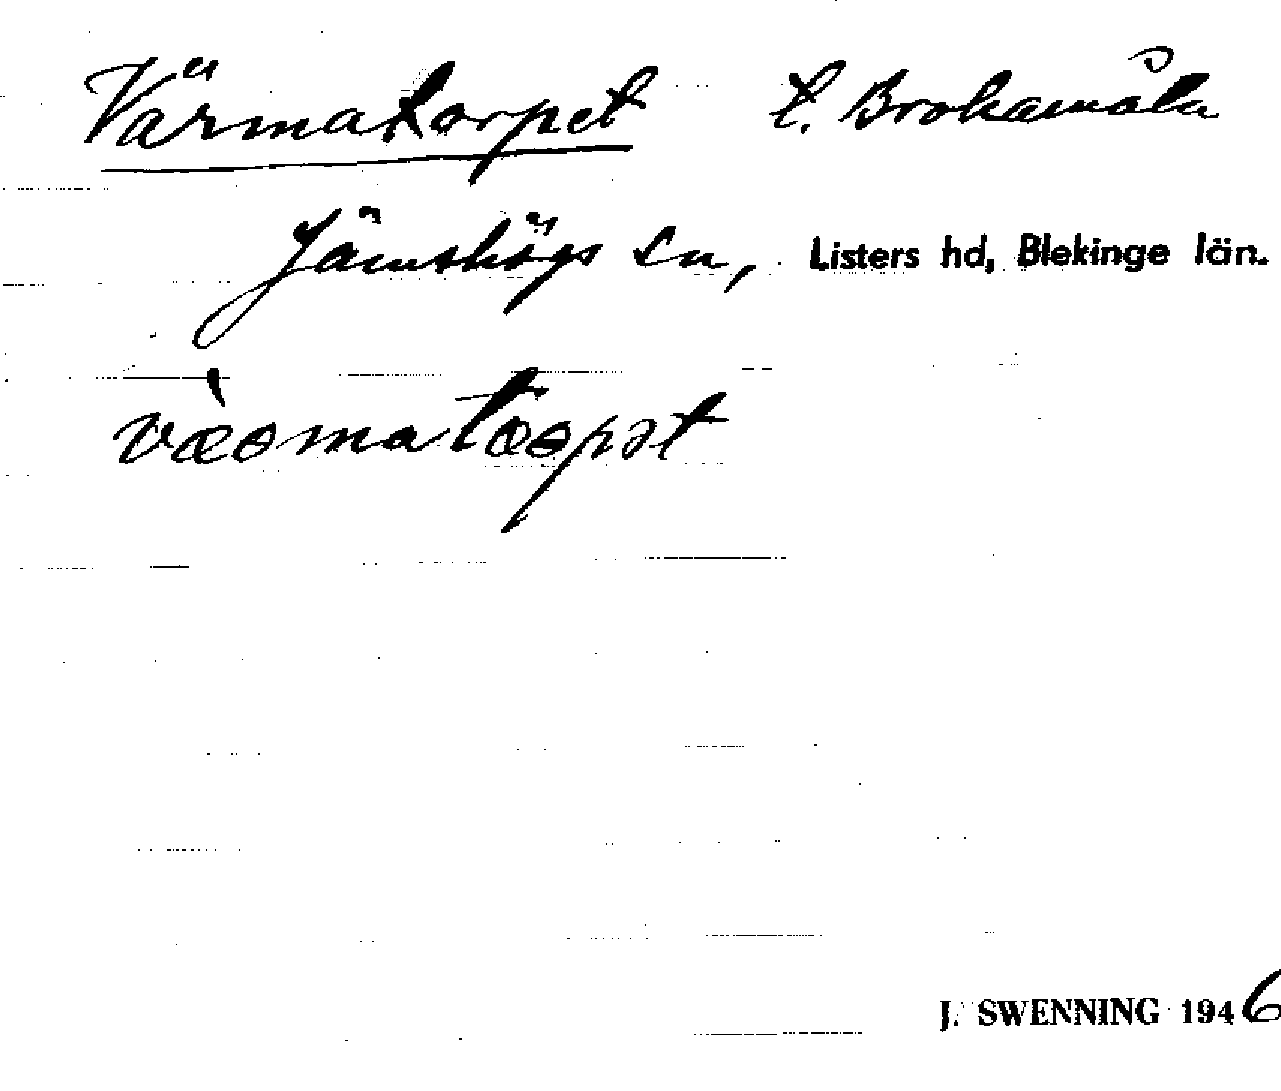 Värmatorpet t. Brokamåla
Jämshögs sn, Listers hd, Blekinge län.
væ̀ɞmatɶɞpət
J. SWENNING 1946